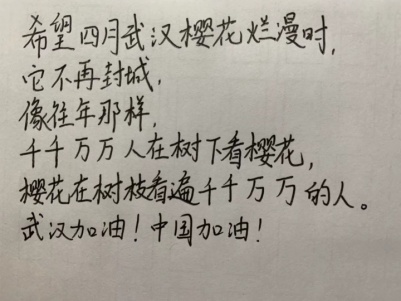 希望四月武汉樱花烂漫时，
它不再封城，
像往年那样，
千千万万人在树下看樱花，
樱花在树枝看遍千千万万的人。
武汉加油！中国加油！